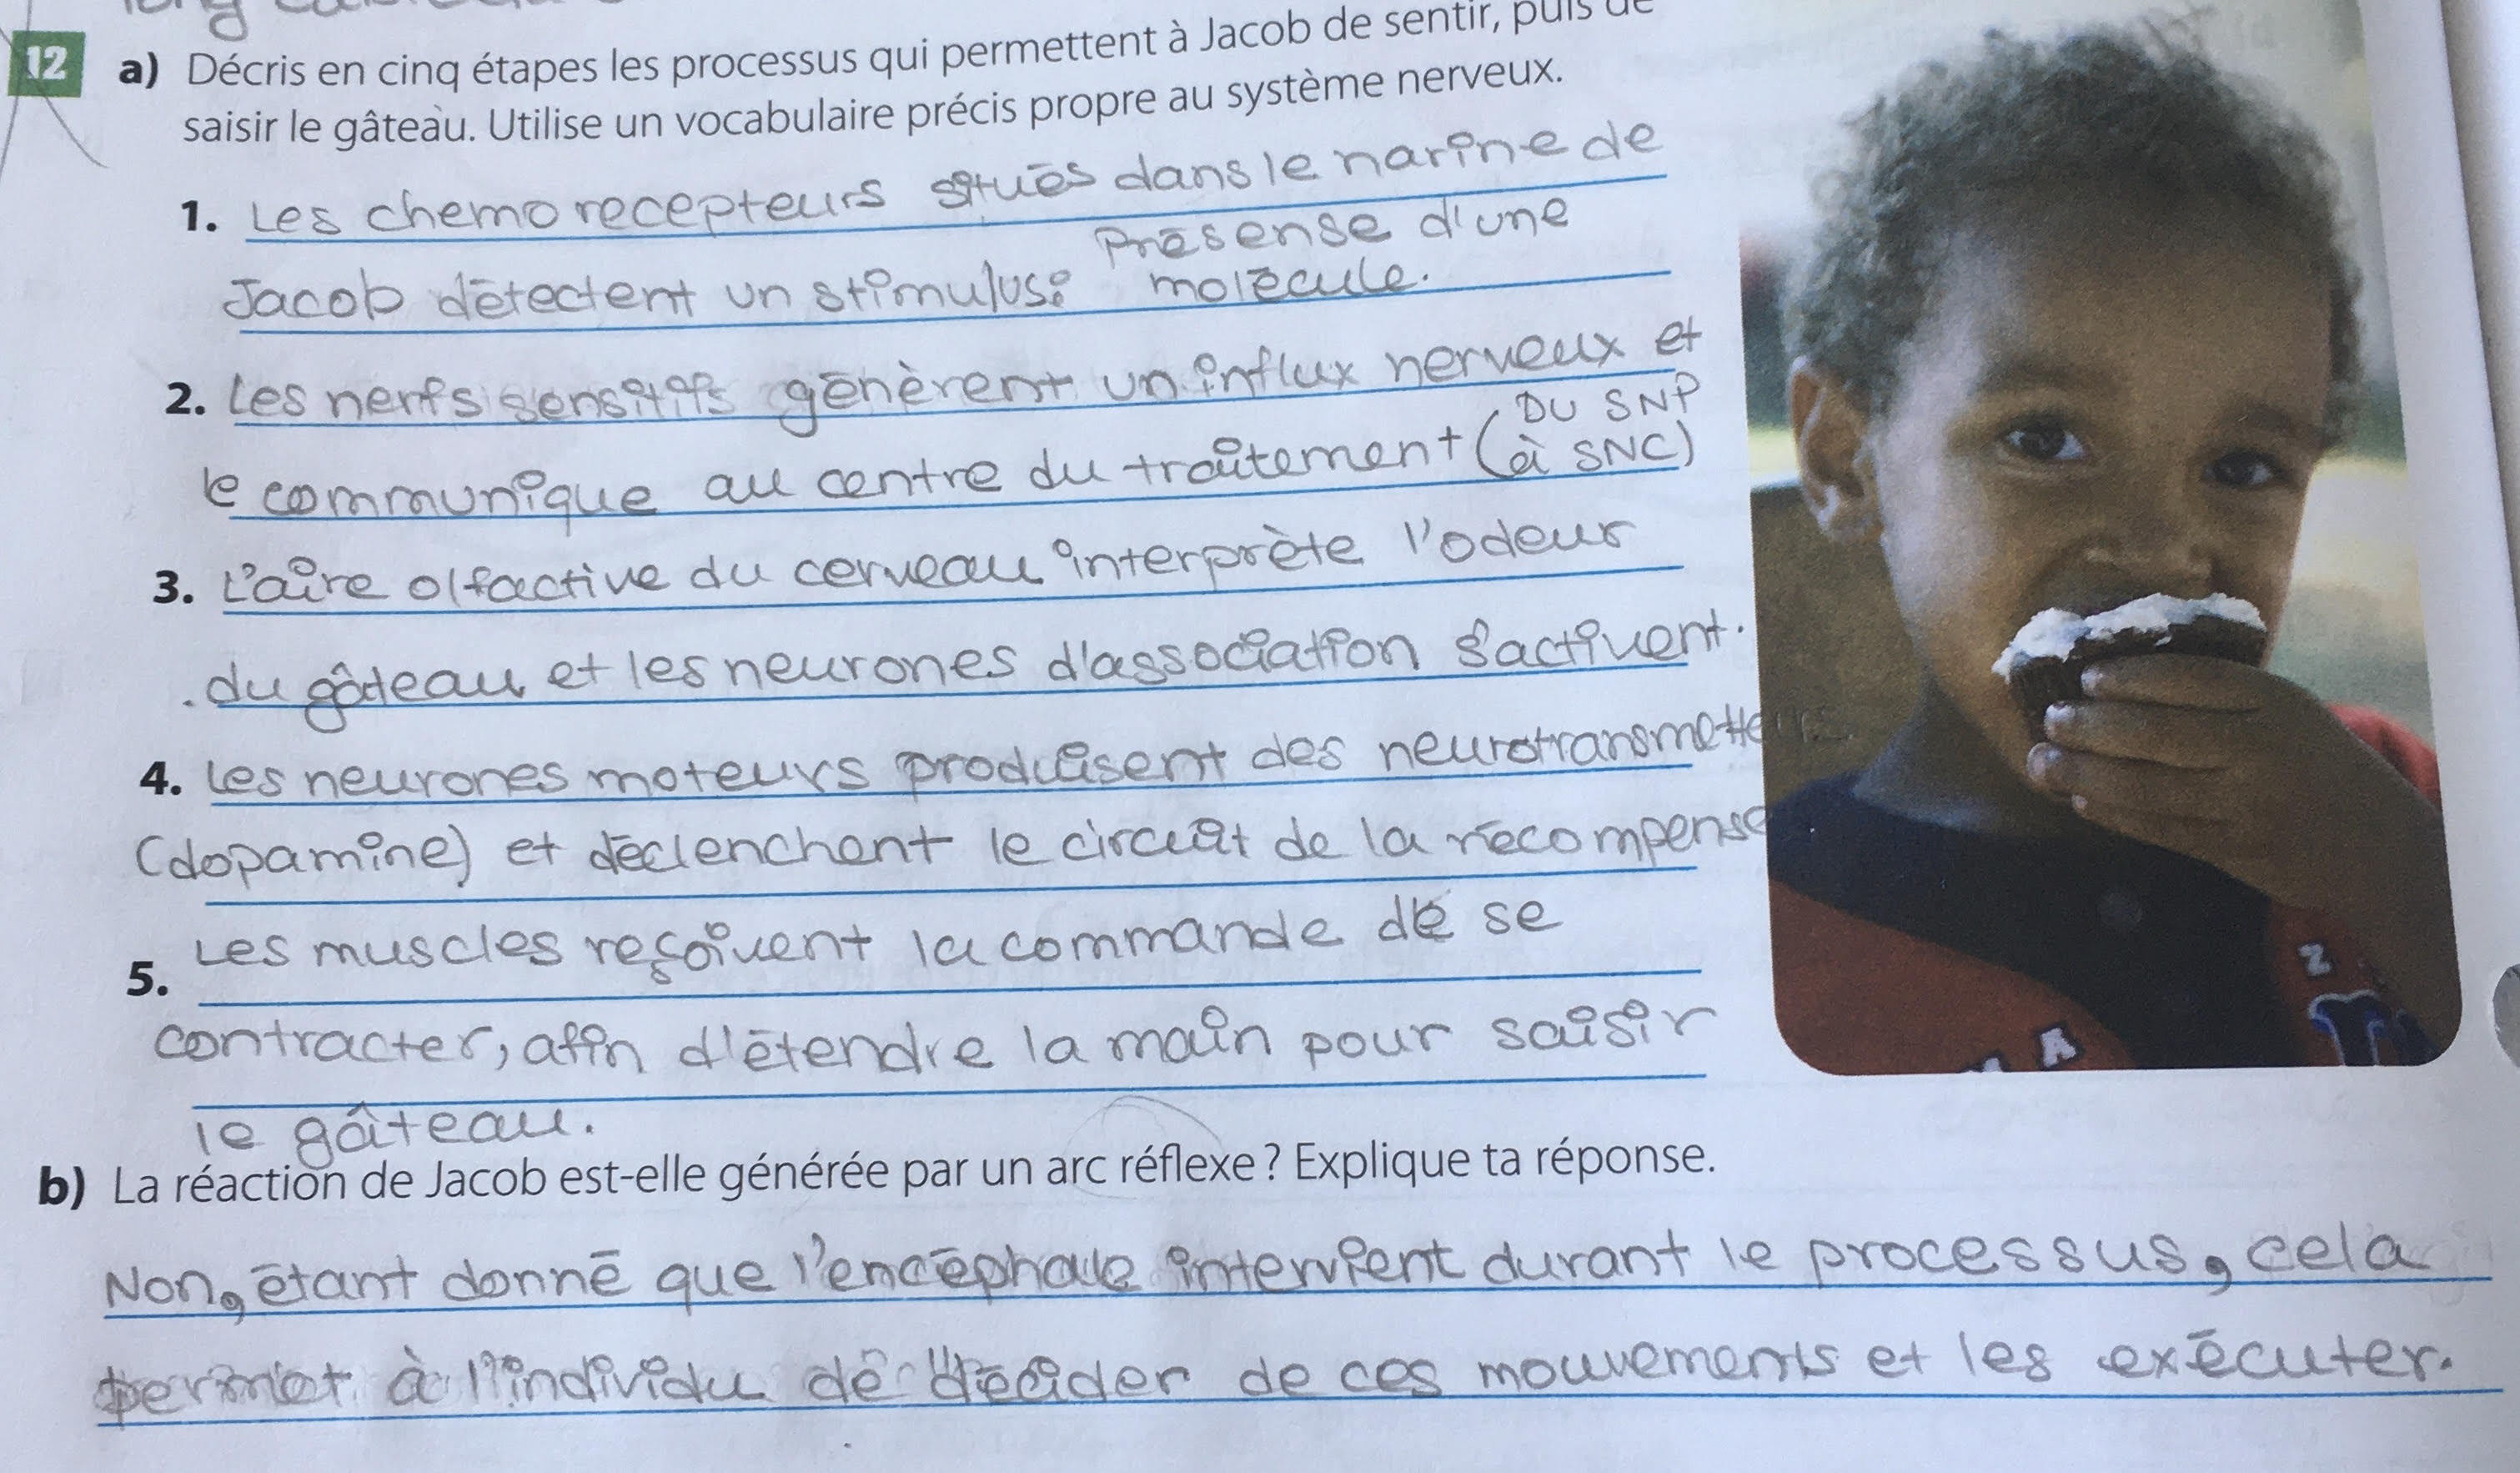 12 a) Décris en cinq étapes les processus qui permettent à Jacob de sentir, puis de
saisir le gâteau. Utilise un vocabulaire précis propre au système nerveux.
1. Les chemorecepteurs situés dans le narine de
Jacob détectent un stimulus: présense d'une
molécule.
2. Les nerfs sensitifs génèrent un influx nerveux et
le communique au centre du traitement (DU SNP
à SNC)
3. L'aire olfactive du cerveau interprète l'odeur
du gâteau et les neurones d'association s'activent.
4. Les neurones moteurs produisent des neurotransmetteurs
(dopamine) et déclenchent le circuit de la récompense
5. Les muscles reçoivent la commande de se
contracter, afin d'étendre la main pour saisir
le gâteau.
b) La réaction de Jacob est-elle générée par un arc réflexe ? Explique ta réponse.
Non, étant donné que l'encéphale intervient durant le processus, cela
permet à l'individu de décider de ces mouvements et les exécuter.
Z
A